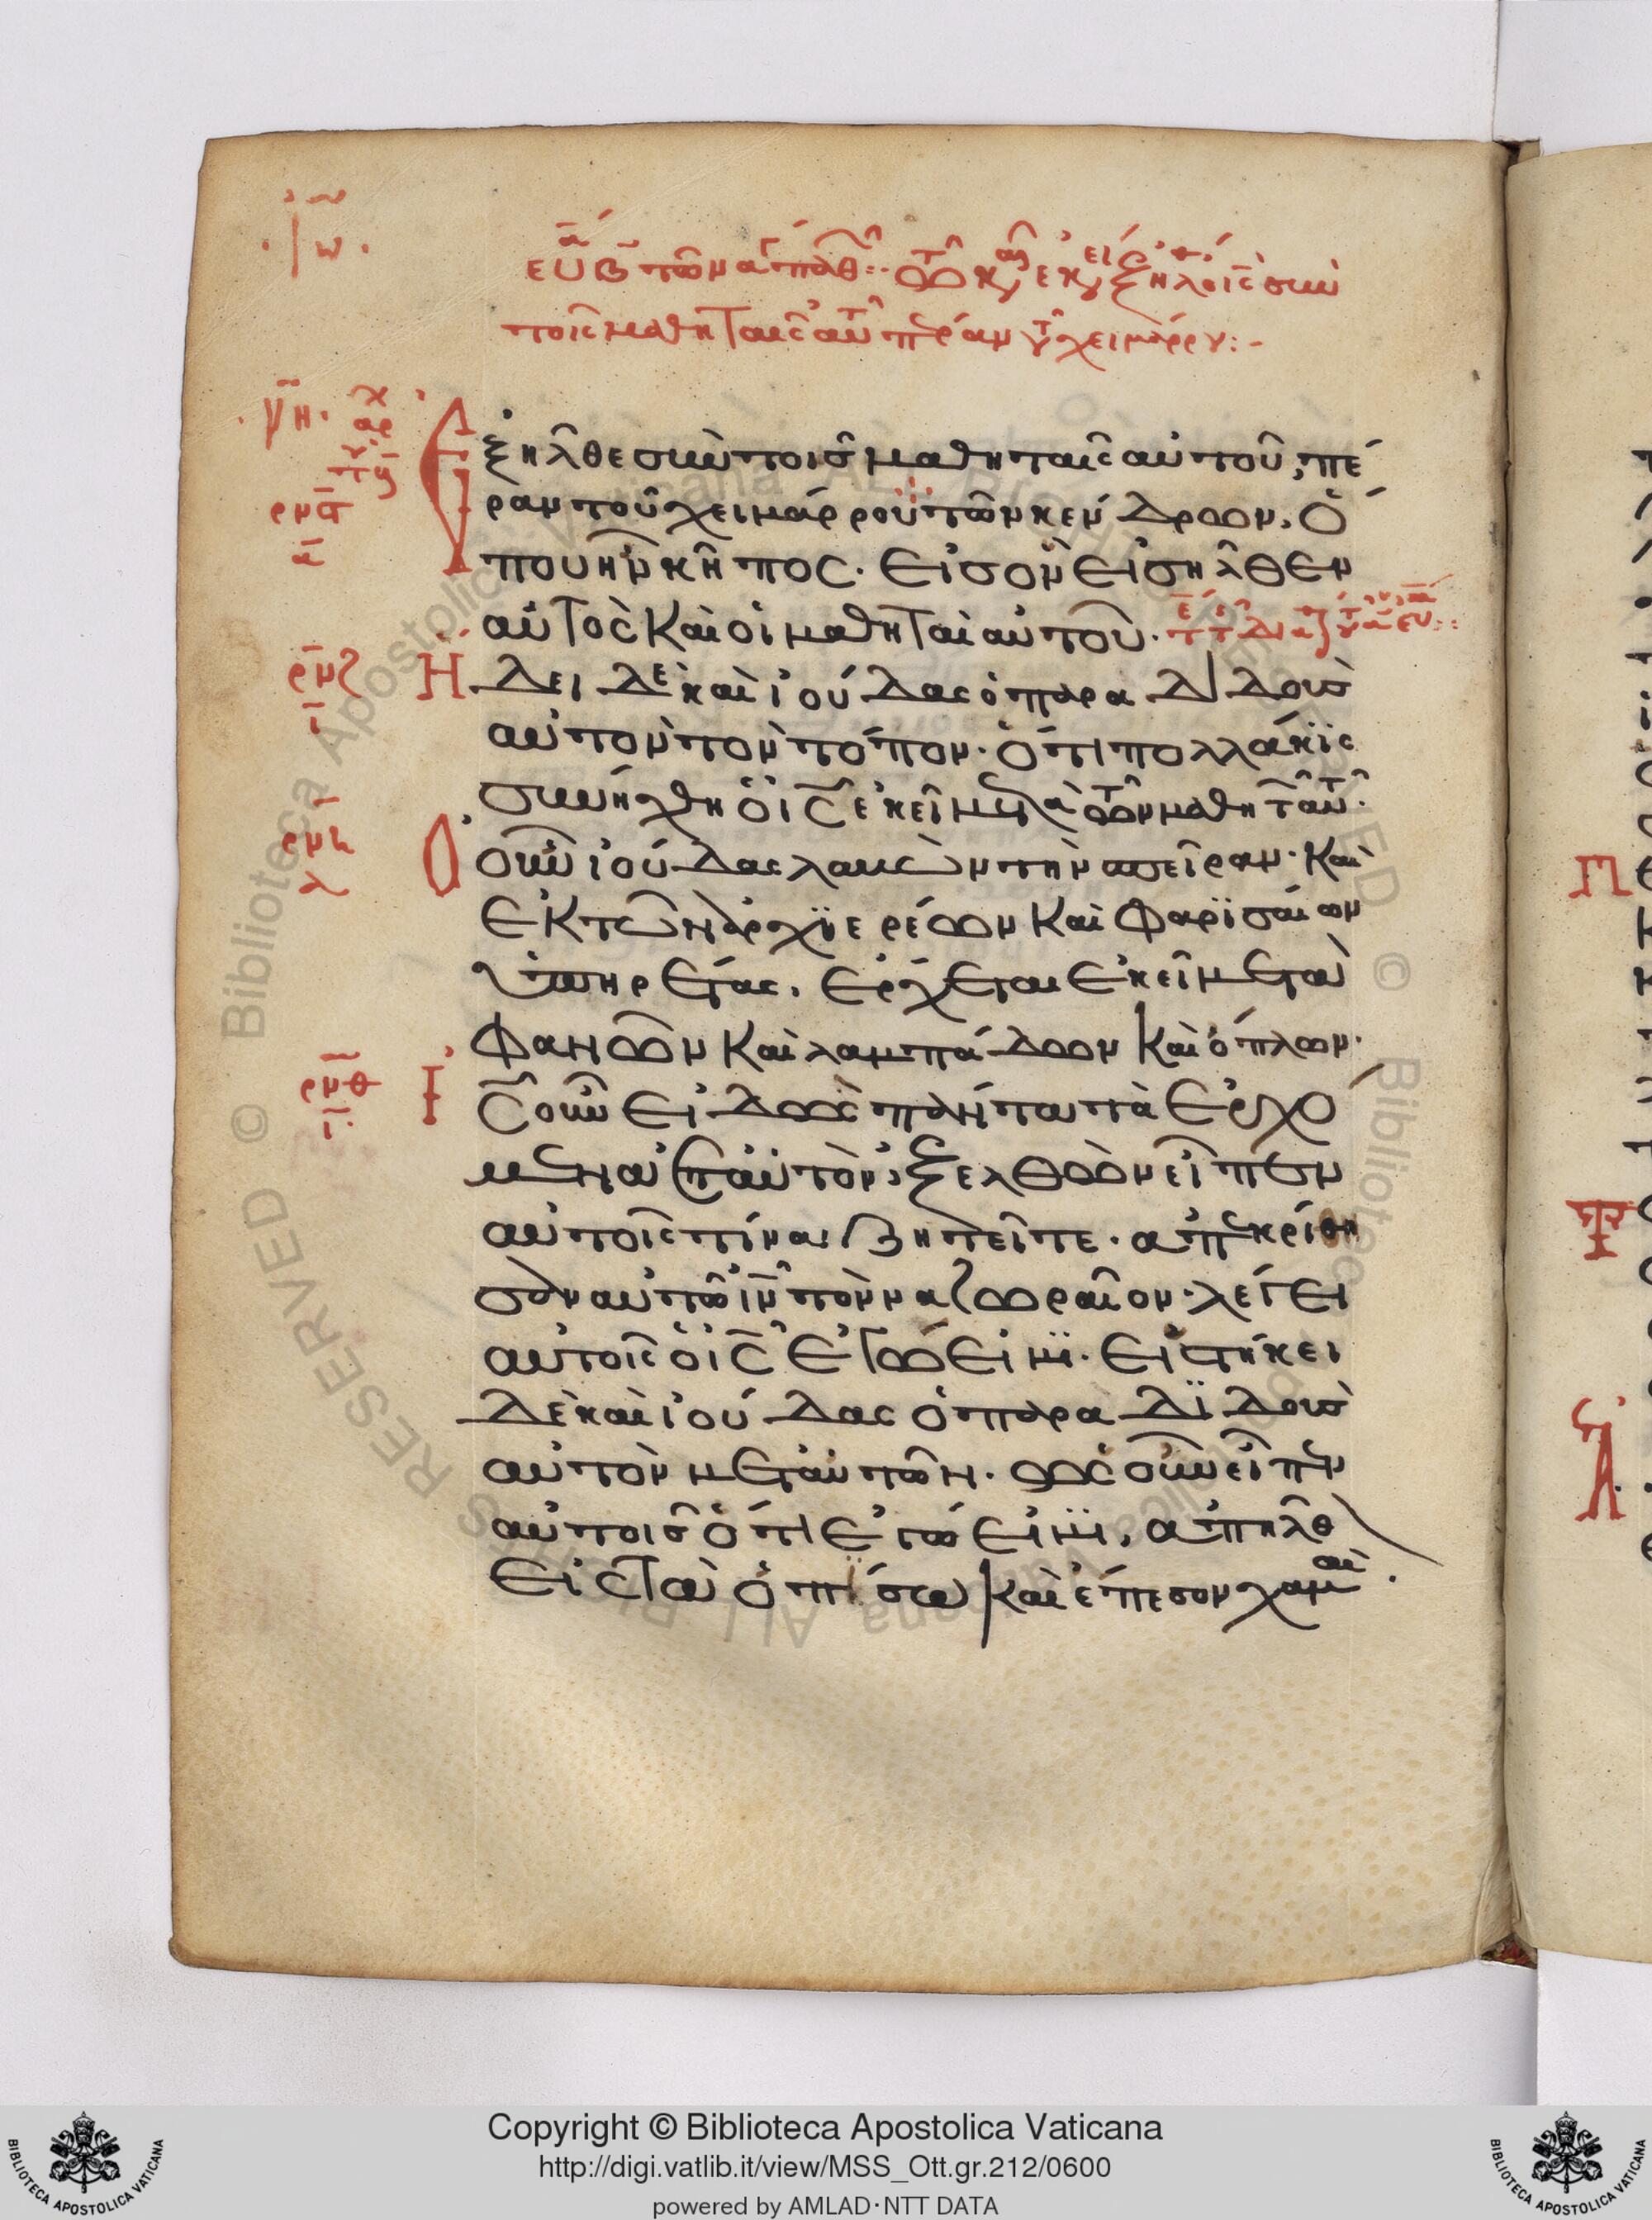 ἰω
ευα β τῶν παθ τῶ κ ἐκ ἐξῆλ ὁ ις σὺν
τοῖς μαθηταῖς αὐτ πέραν τ χειμάρρου
νη
ἀρχ
Ἐξῆλθε σὺν τοῖς μαθηταῖς αὐτοῦ, πέ
ραν τοῦ χειμάρρου τῶν κένδρων, ὅ
που ἦν κῆπος. εἰς ὃν εἰσῆλθεν
αὐτὸς καὶ οἱ μαθηταὶ αὐτοῦ.
ρμϛ
Ἤδει δὲ καὶ ἰούδας ὁ παραδιδοὺς
αὐτὸν τὸν τόπον. ὅτι πολλάκϊς
συνήχθη ὁ ις ἐκεῖ μετὰ τῶν μαθητ αὐτ.
ρμη
Ὁ οὖν ἰούδας λαβὼν τὴν σπεῖραν. καὶ
ἐκ τῶν ἀρχϊερέων καὶ φαρϊσαίων
ὑπηρέτας. ἔρχεται ἐκεῖ μετὰ
φανῶν καὶ λαμπάδων καὶ ὅπλων.
ρμθ
Ἰς οὖν εἰδὼς πάντα τὰ ἐρχό
μενα ἐπ αὐτὸν, ἐξελθὼν εἶπεν
αὐτοῖς τίνα ζητεῖτε. ἀπεκρίθη
σαν αὐτῶ ιν τὸν ναζωραῖον. λέγει
αὐτοῖς ὁ ις ἐγώ εἰμϊ. εἱστήκει
δὲ καὶ ἰούδας ὁ παραδϊδοὺς
αὐτὸν μετ αὐτῶν. ὡς οὖν εἶπεν
αὐτοῖς ὅτι ἐγώ εἰμϊ, ἀπῆλθ
εἰς τὰ ὀπίσω καὶ ἔπεσον χαμαὶ.
© Biblioteca Apostolica Vaticana ALL RIGHTS RESERVED
Copyright © Biblioteca Apostolica Vaticana
http://digi.vatlib.it/view/MSS_Ott.gr.212/0600
powered by AMLAD·NTT DATA
BIBLIOTECA APOSTOLICA VATICANA
BIBLIOTECA APOSTOLICA VATICANA